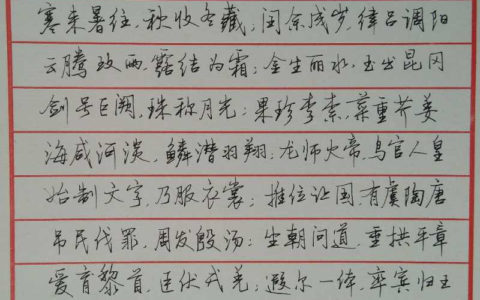 寒来暑往，秋收冬藏；闰余成岁，律吕调阳
云腾致雨，露结为霜；金生丽水，玉出昆冈
剑号巨阙，珠称月光；果珍李柰，菜重芥姜
海咸河淡，鳞潜羽翔；龙师火帝，鸟官人皇
始制文字，乃服衣裳；推位让国，有虞陶唐
吊民伐罪，周发殷汤；坐朝问道，垂拱平章
爱育黎首，臣伏戎羌；遐尔一体，率宾归王